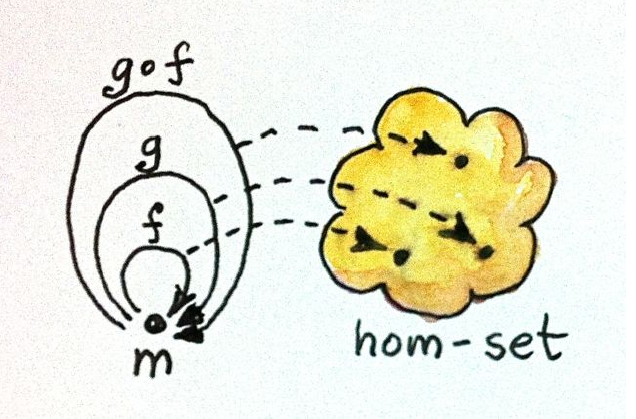 g∘f
g
f
m
hom-set